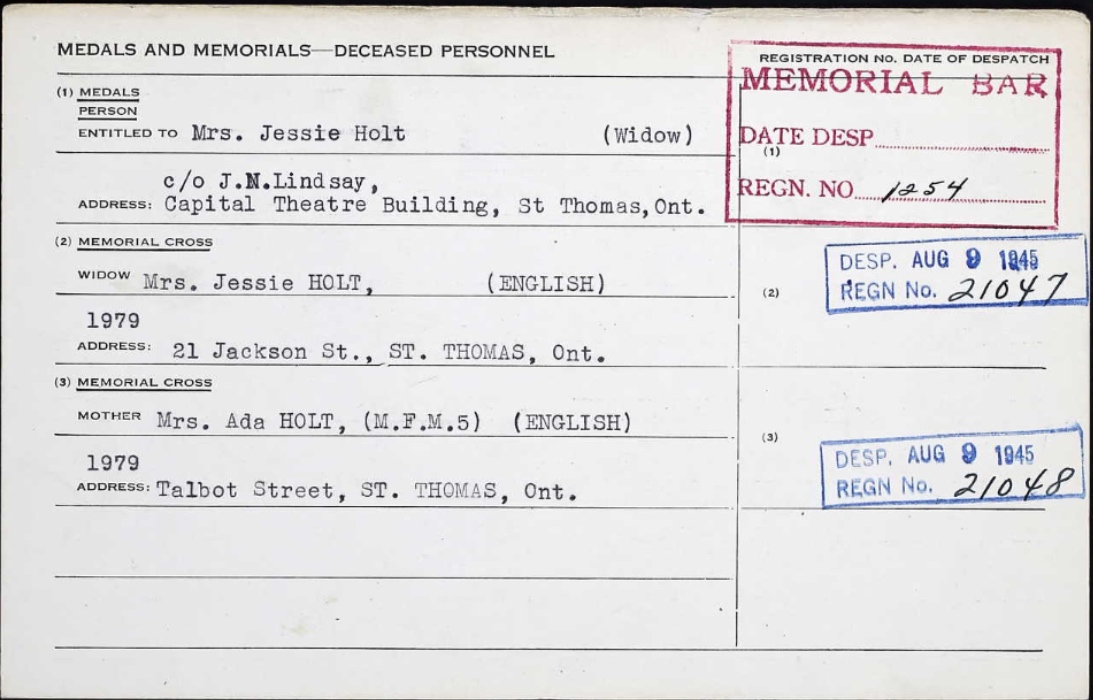 MEDALS AND MEMORIALS—DECEASED PERSONNEL
REGISTRATION NO. DATE OF DESPATCH
MEMORIAL BAR
(1) MEDALS
PERSON
ENTITLED TO Mrs. Jessie Holt (Widow)
DATE DESP
(1)
REGN. NO. 1254
c/o J.N.Lindsay,
ADDRESS: Capital Theatre Building, St Thomas,Ont.
(2) MEMORIAL CROSS
WIDOW Mrs. Jessie HOLT, (ENGLISH)
(2)
DESP. AUG 9 1945
REGN No. 21047
1979
ADDRESS: 21 Jackson St., ST. THOMAS, Ont.
(3) MEMORIAL CROSS
MOTHER Mrs. Ada HOLT, (M.F.M.5) (ENGLISH)
(3)
DESP. AUG 9 1945
REGN No. 21048
1979
ADDRESS: Talbot Street, ST. THOMAS, Ont.